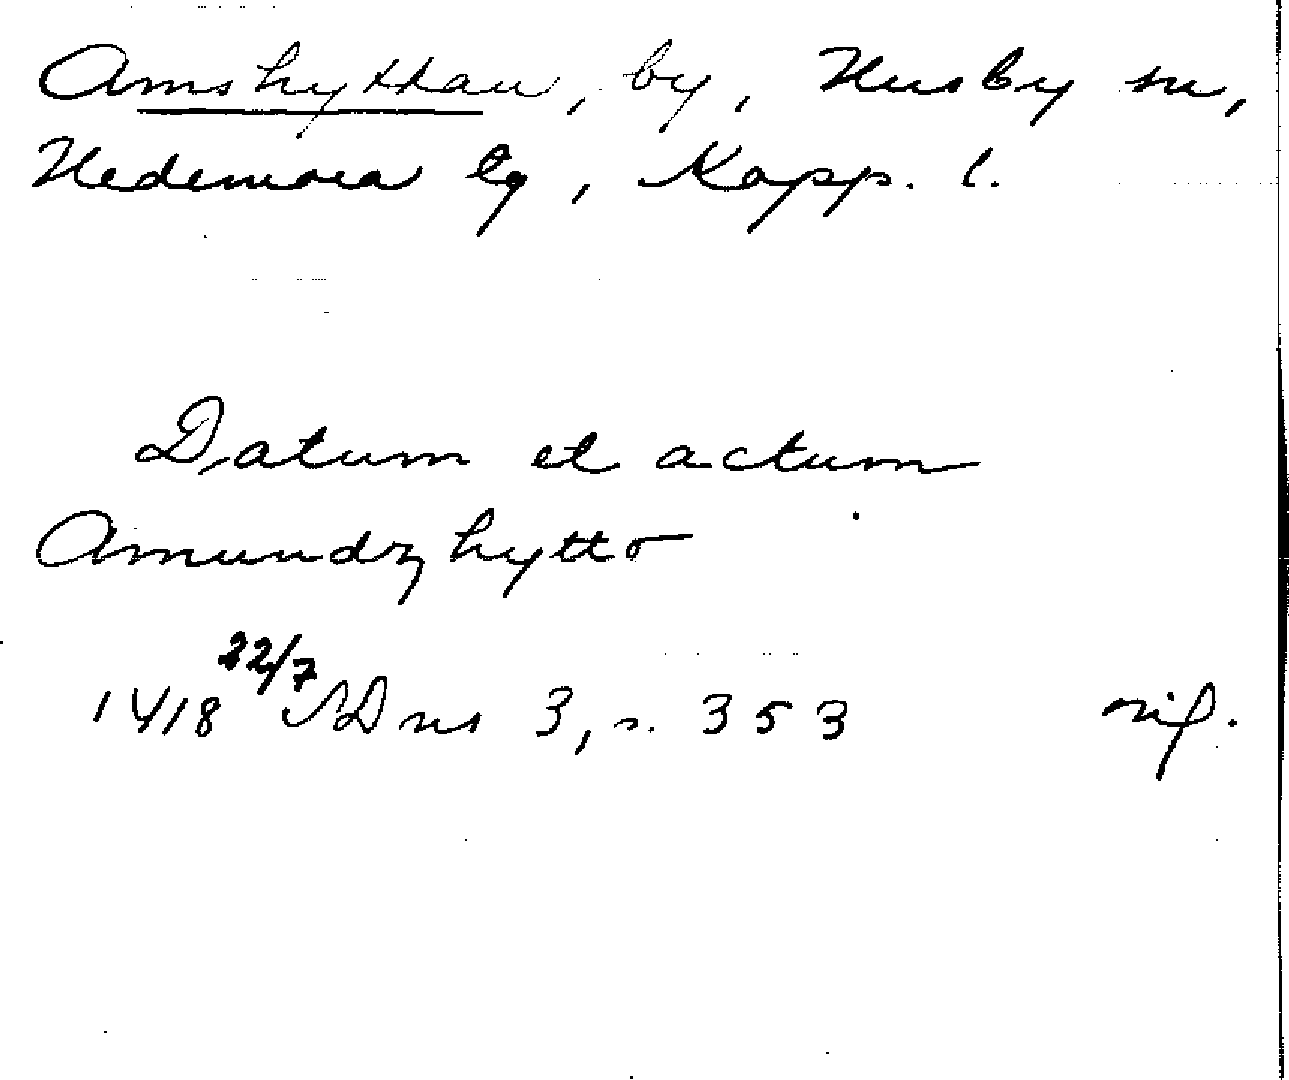 Amshyttan, by, Husby sn,
Hedemora tg, Kopp. l.
Datum et actum
Amundzhytto
1418 22/7 SDns 3, s. 353 nif.